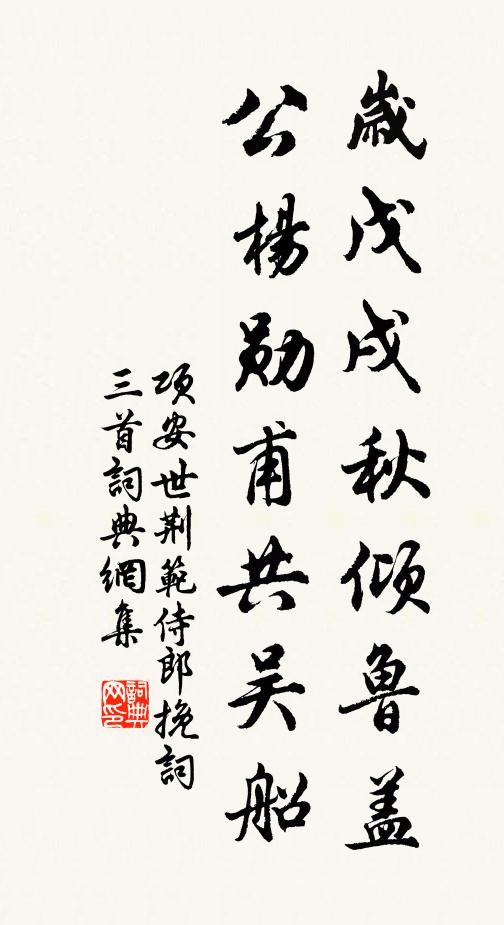 歲戊戌秋傾魯蓋
公楊勛甫共吴船
項安世荆範侍郎挽詞
三首詞典網集
詞典网印